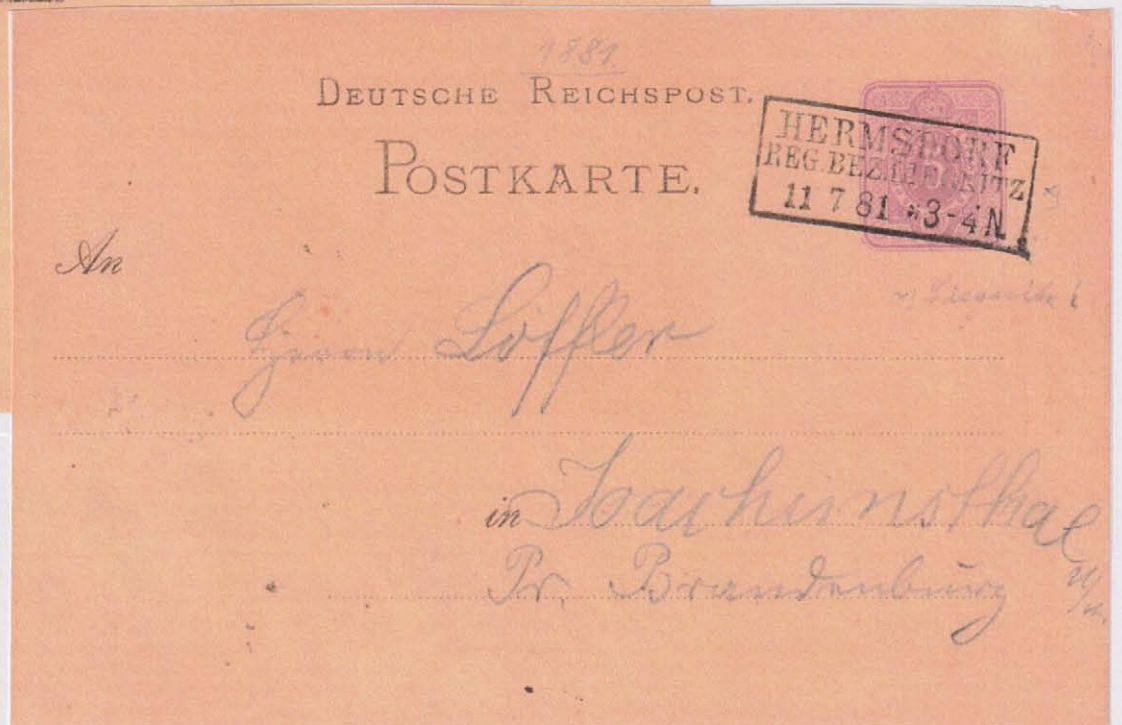 1881.
DEUTSCHE REICHSPOST.
POSTKARTE.
HERMSDORF
REG.BEZ.LIEGNITZ
11 7 81 *3-4N.
An
Herrn Löffler
in Joachimsthal
Pr. Brandenburg